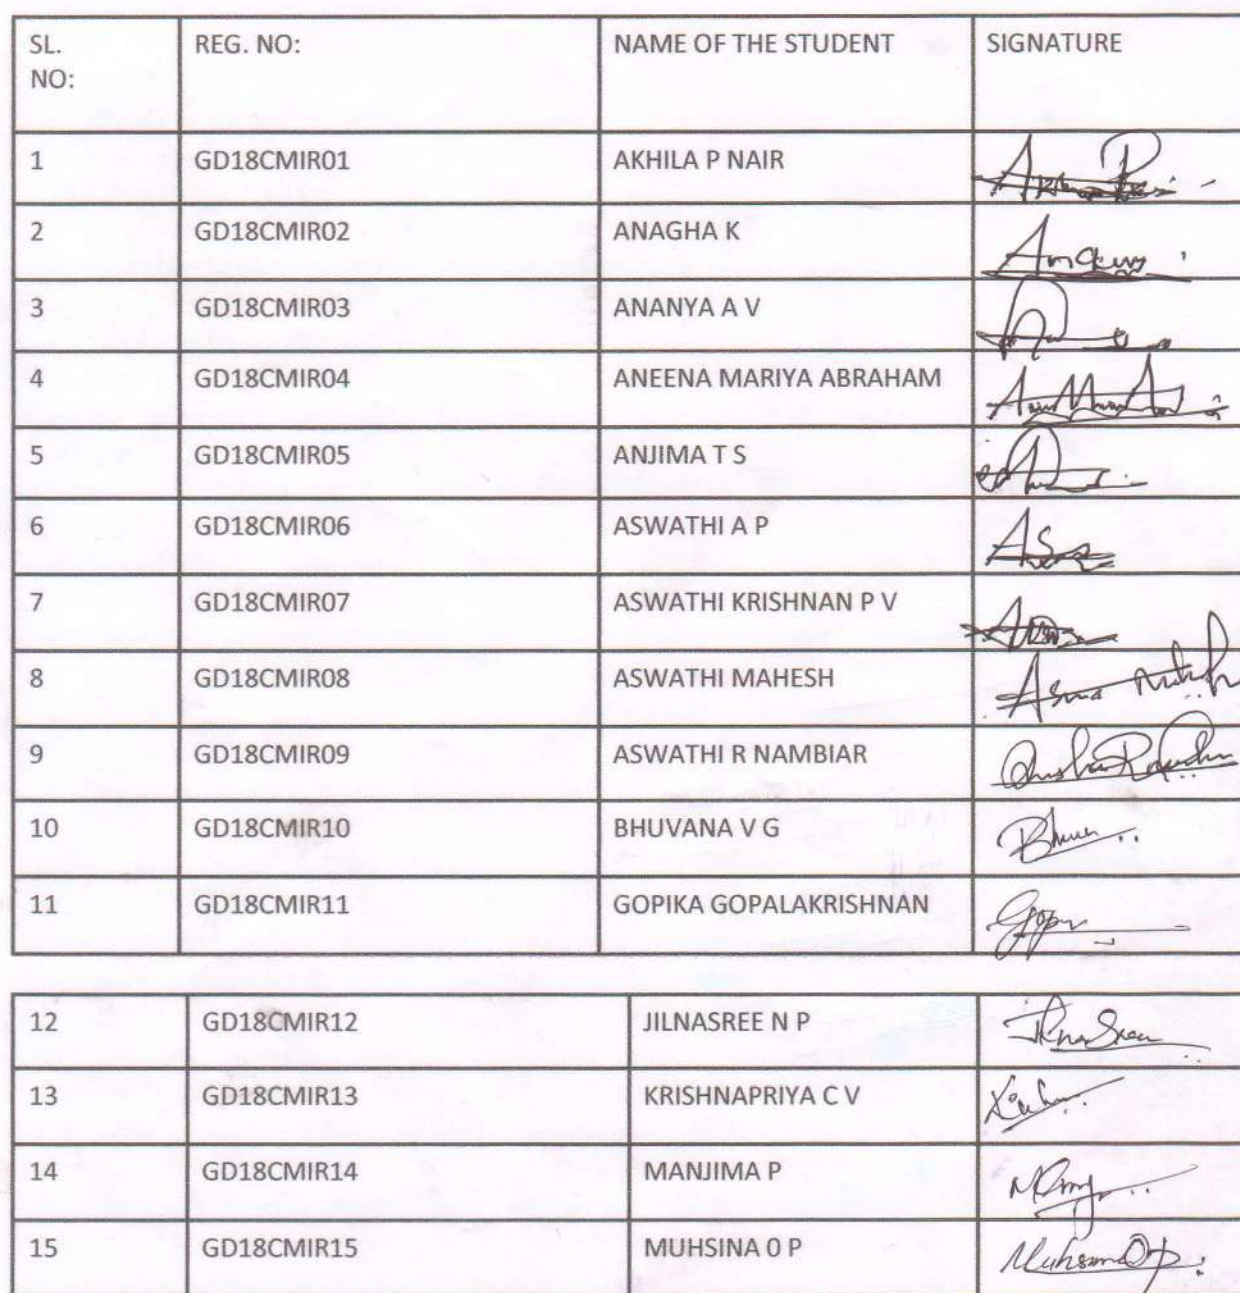 SL. NO: REG. NO: NAME OF THE STUDENT SIGNATURE
1 GD18CMIR01 AKHILA P NAIR
2 GD18CMIR02 ANAGHA K
3 GD18CMIR03 ANANYA A V
4 GD18CMIR04 ANEENA MARIYA ABRAHAM
5 GD18CMIR05 ANJIMA T S
6 GD18CMIR06 ASWATHI A P
7 GD18CMIR07 ASWATHI KRISHNAN P V
8 GD18CMIR08 ASWATHI MAHESH
9 GD18CMIR09 ASWATHI R NAMBIAR
10 GD18CMIR10 BHUVANA V G
11 GD18CMIR11 GOPIKA GOPALAKRISHNAN
12 GD18CMIR12 JILNASREE N P
13 GD18CMIR13 KRISHNAPRIYA C V
14 GD18CMIR14 MANJIMA P
15 GD18CMIR15 MUHSINA 0 P